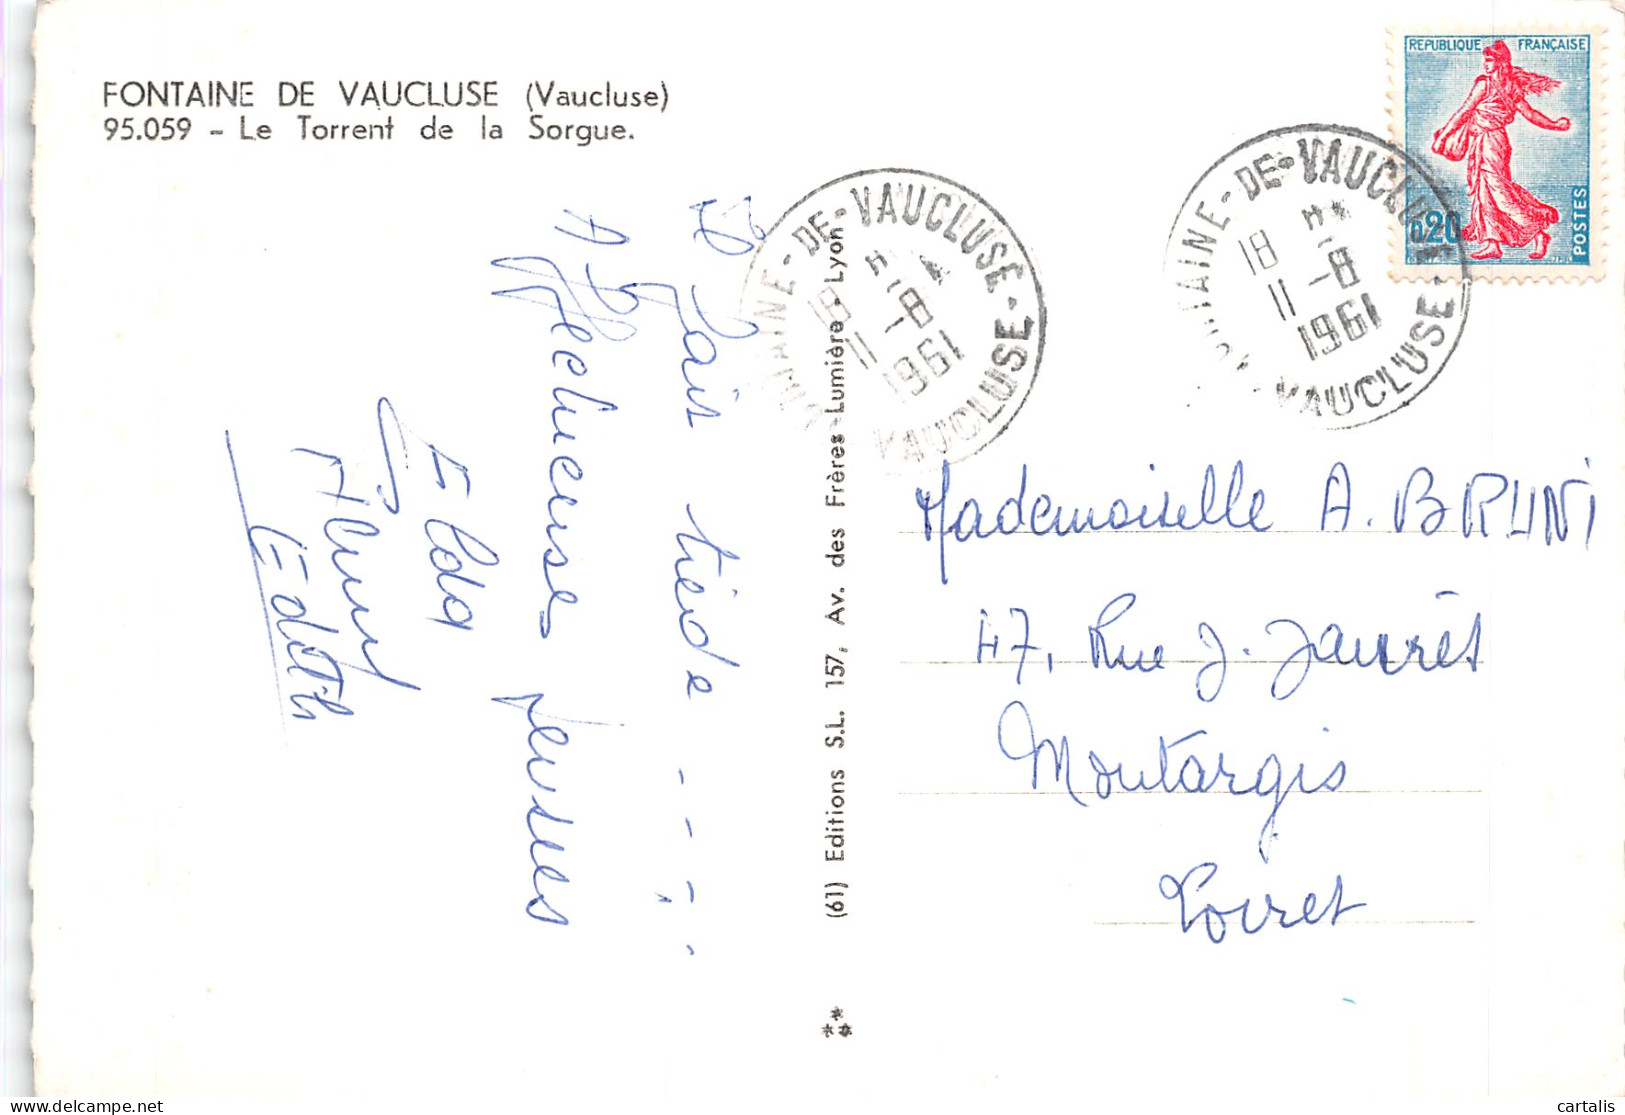 FONTAINE DE VAUCLUSE (Vaucluse)
95.059 - Le Torrent de la Sorgue.
REPUBLIQUE FRANÇAISE
0,20
POSTES
TAINE - DE - VAUCLUSE - VAUCLUSE
18 H
11 - 8
1961
TAINE - DE - VAUCLUSE - VAUCLUSE
18 H
11 - 8
1961
Il fait tiède - - - -
Affectueuses pensées
Elda
Edith
(61) Editions S.L. 157, Av. des Frères-Lumière - Lyon
Mademoiselle A. BRUNI
47, Rue J. Jaurès
Montargis
Loiret
cartalis